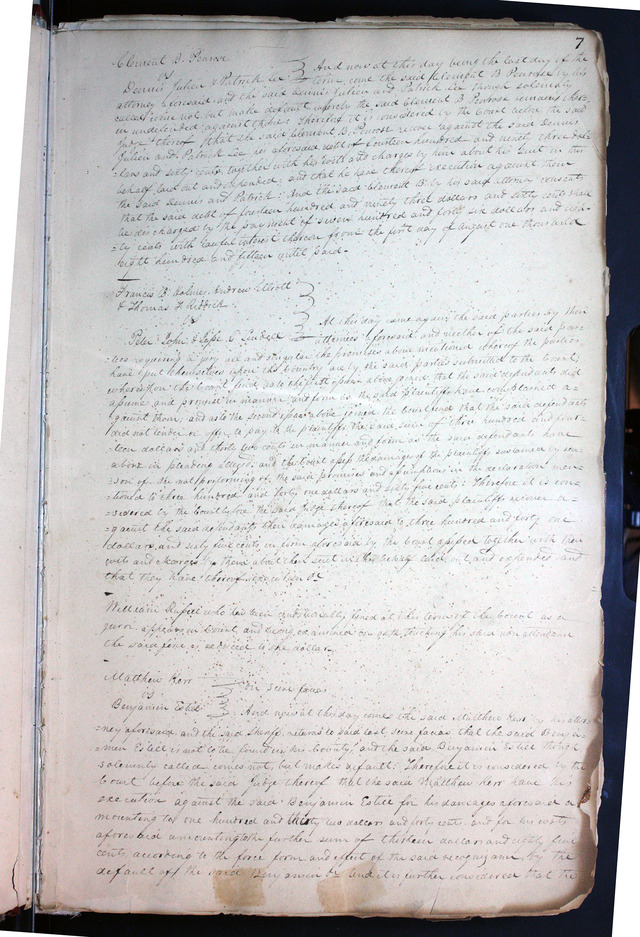 7
Clement B. Penrose
vs
Dennis Julien & Patrick Lee } And now at this day being the last day of the
term, come the said Clement B Penrose by his
attorney aforesaid and the said Dennis Julien and Patrick Lee though solemnly
called come not but make default whereby the said Clement B Penrose remains there-
in undefended against them. Therefore it is considered by the Court before the said
Judge thereof that the said Clement B. Penrose recover against the said Dennis
Julien and Patrick Lee his aforesaid debt of fourteen hundred and ninety three dol-
lars and sixty cents together with his costs and charges by him about his suit in this
behalf laid out and expended, and that he have thereof execution against them
the said Dennis and Patrick. And the said Clement B. by his said attorney consents
that the said debt of fourteen hundred and ninety three dollars and sixty cents shall
be discharged by the payment of seven hundred and forty six dollars and eigh-
ty cents with lawful interest thereon from the first day of August one thousand
eight hundred and fifteen until paid.
Francis B. Holmes, Andrew Elliott
& Thomas F. Reddick
vs
Peter, John & Jesse Lindell } At this day came again the said parties by their
attornies aforesaid and neither of the said par-
ties requiring a jury all and singular the premises above mentioned whereof the parties
have put themselves upon the Country are by the said parties submitted to the Court,
whereupon the Court find as to the first above joined that the said defendants did
assume and promise in manner and form as the said plaintiffs have complained a-
gainst them, and as to the second above joined the Court find that the said defendants
did not tender or offer to pay to the plaintiffs the said sum of three hundred and four-
teen dollars and thirty two cents in manner and form as the said defendants have
above in pleading alleged, and the Court assess the damages of the plaintiffs sustained by rea-
son of the not performing of the said promises and assumptions in the declaration men-
tioned to three hundred and forty one dollars and sixty five cents. Therefore it is con-
sidered by the Court before the said Judge thereof that the said plaintiffs recover a-
gainst the said defendants their damages aforesaid to three hundred and forty one
dollars and sixty five cents in form aforesaid by the Court assessed together with their
costs and charges by them about their suit in this behalf laid out and expended and
that they have thereof execution &c
William Russell who has been conditionally fined at this term of the Court as a
juror appears in Court, and being examined on oath touching his said non attendance
the said fine is reduced to one dollar.
Matthew Kerr
vs } on scire facias
Benjamin Estill } And now at this day come the said Matthew Kerr by his attor-
ney aforesaid, and the said Sheriff returns to said last scire facias that the said Benja-
-min Estill is not to be found in his County, and the said Benjamin Estill though
solemnly called comes not, but makes default: Therefore it is considered by the
Court before the said Judge thereof that the said Matthew Kerr have his
execution against the said Benjamin Estill for his damages aforesaid a-
mounting to one hundred and thirty two dollars and forty cents, and for his costs
aforesaid amounting to the further sum of thirteen dollars and eighty five
cents, according to the force form and effect of the said recognizance by the
default of the said Benjamin &c And it is further considered that the